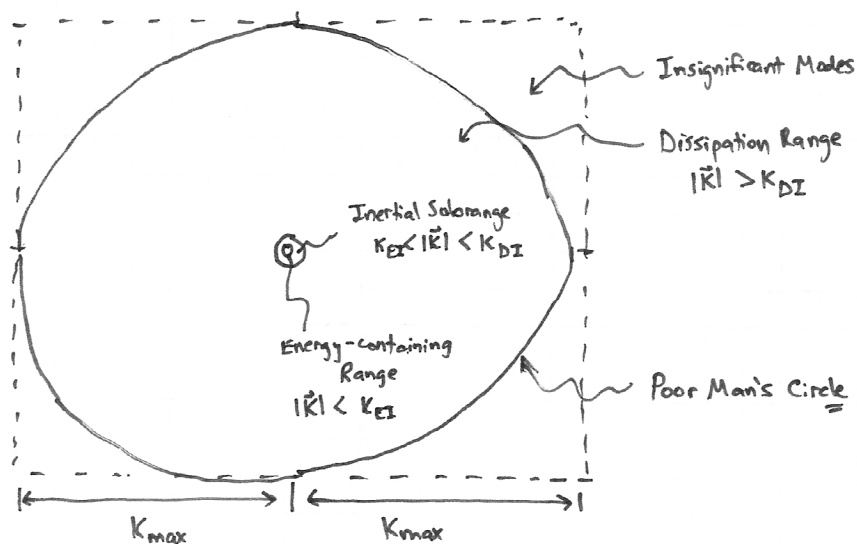 Insignificant Modes
Dissipation Range
|K⃗| > K_DI
Inertial Subrange
K_EI < |K⃗| < K_DI
Energy-containing
Range
|K⃗| < K_EI
Poor Man's Circle
K_max
K_max